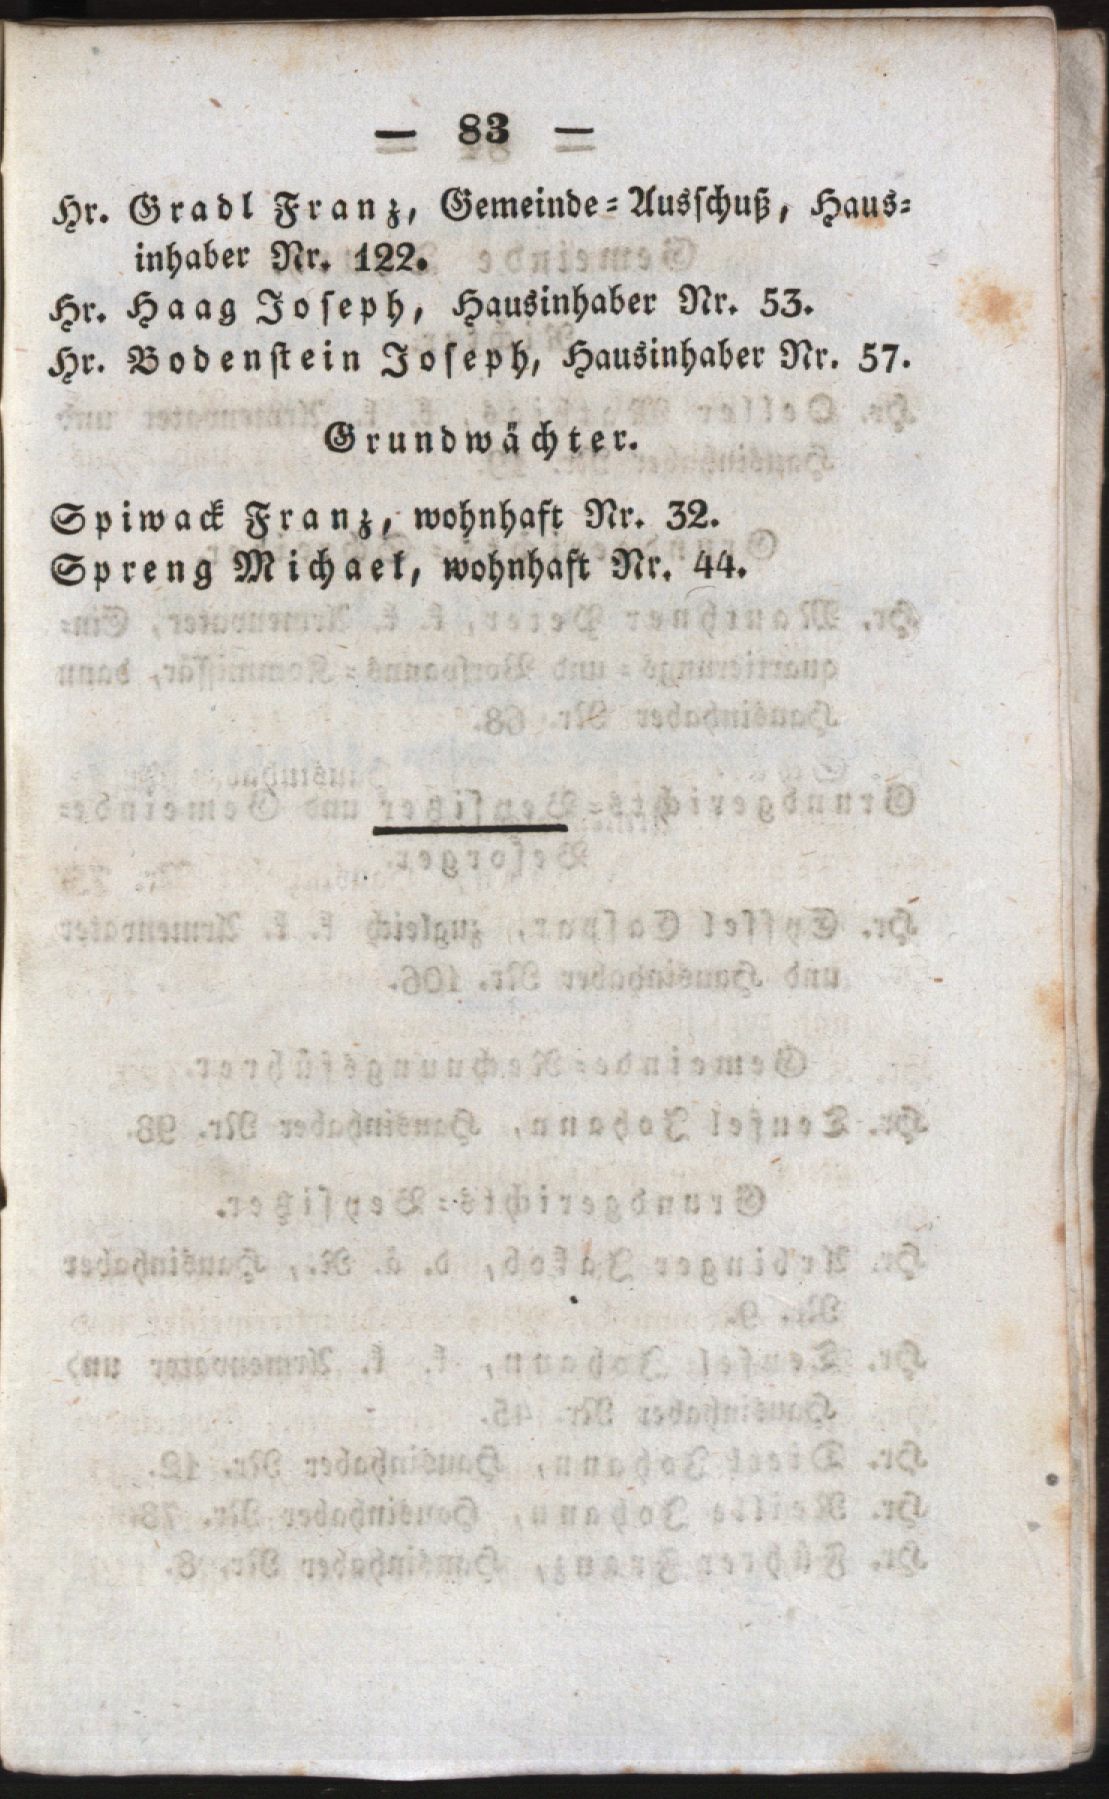 — 83 —
Hr. Gradl Franz, Gemeinde-Ausschuß, Haus-
inhaber Nr. 122.
Hr. Haag Joseph, Hausinhaber Nr. 53.
Hr. Bodenstein Joseph, Hausinhaber Nr. 57.
Grundwächter.
Spiwack Franz, wohnhaft Nr. 32.
Spreng Michael, wohnhaft Nr. 44.